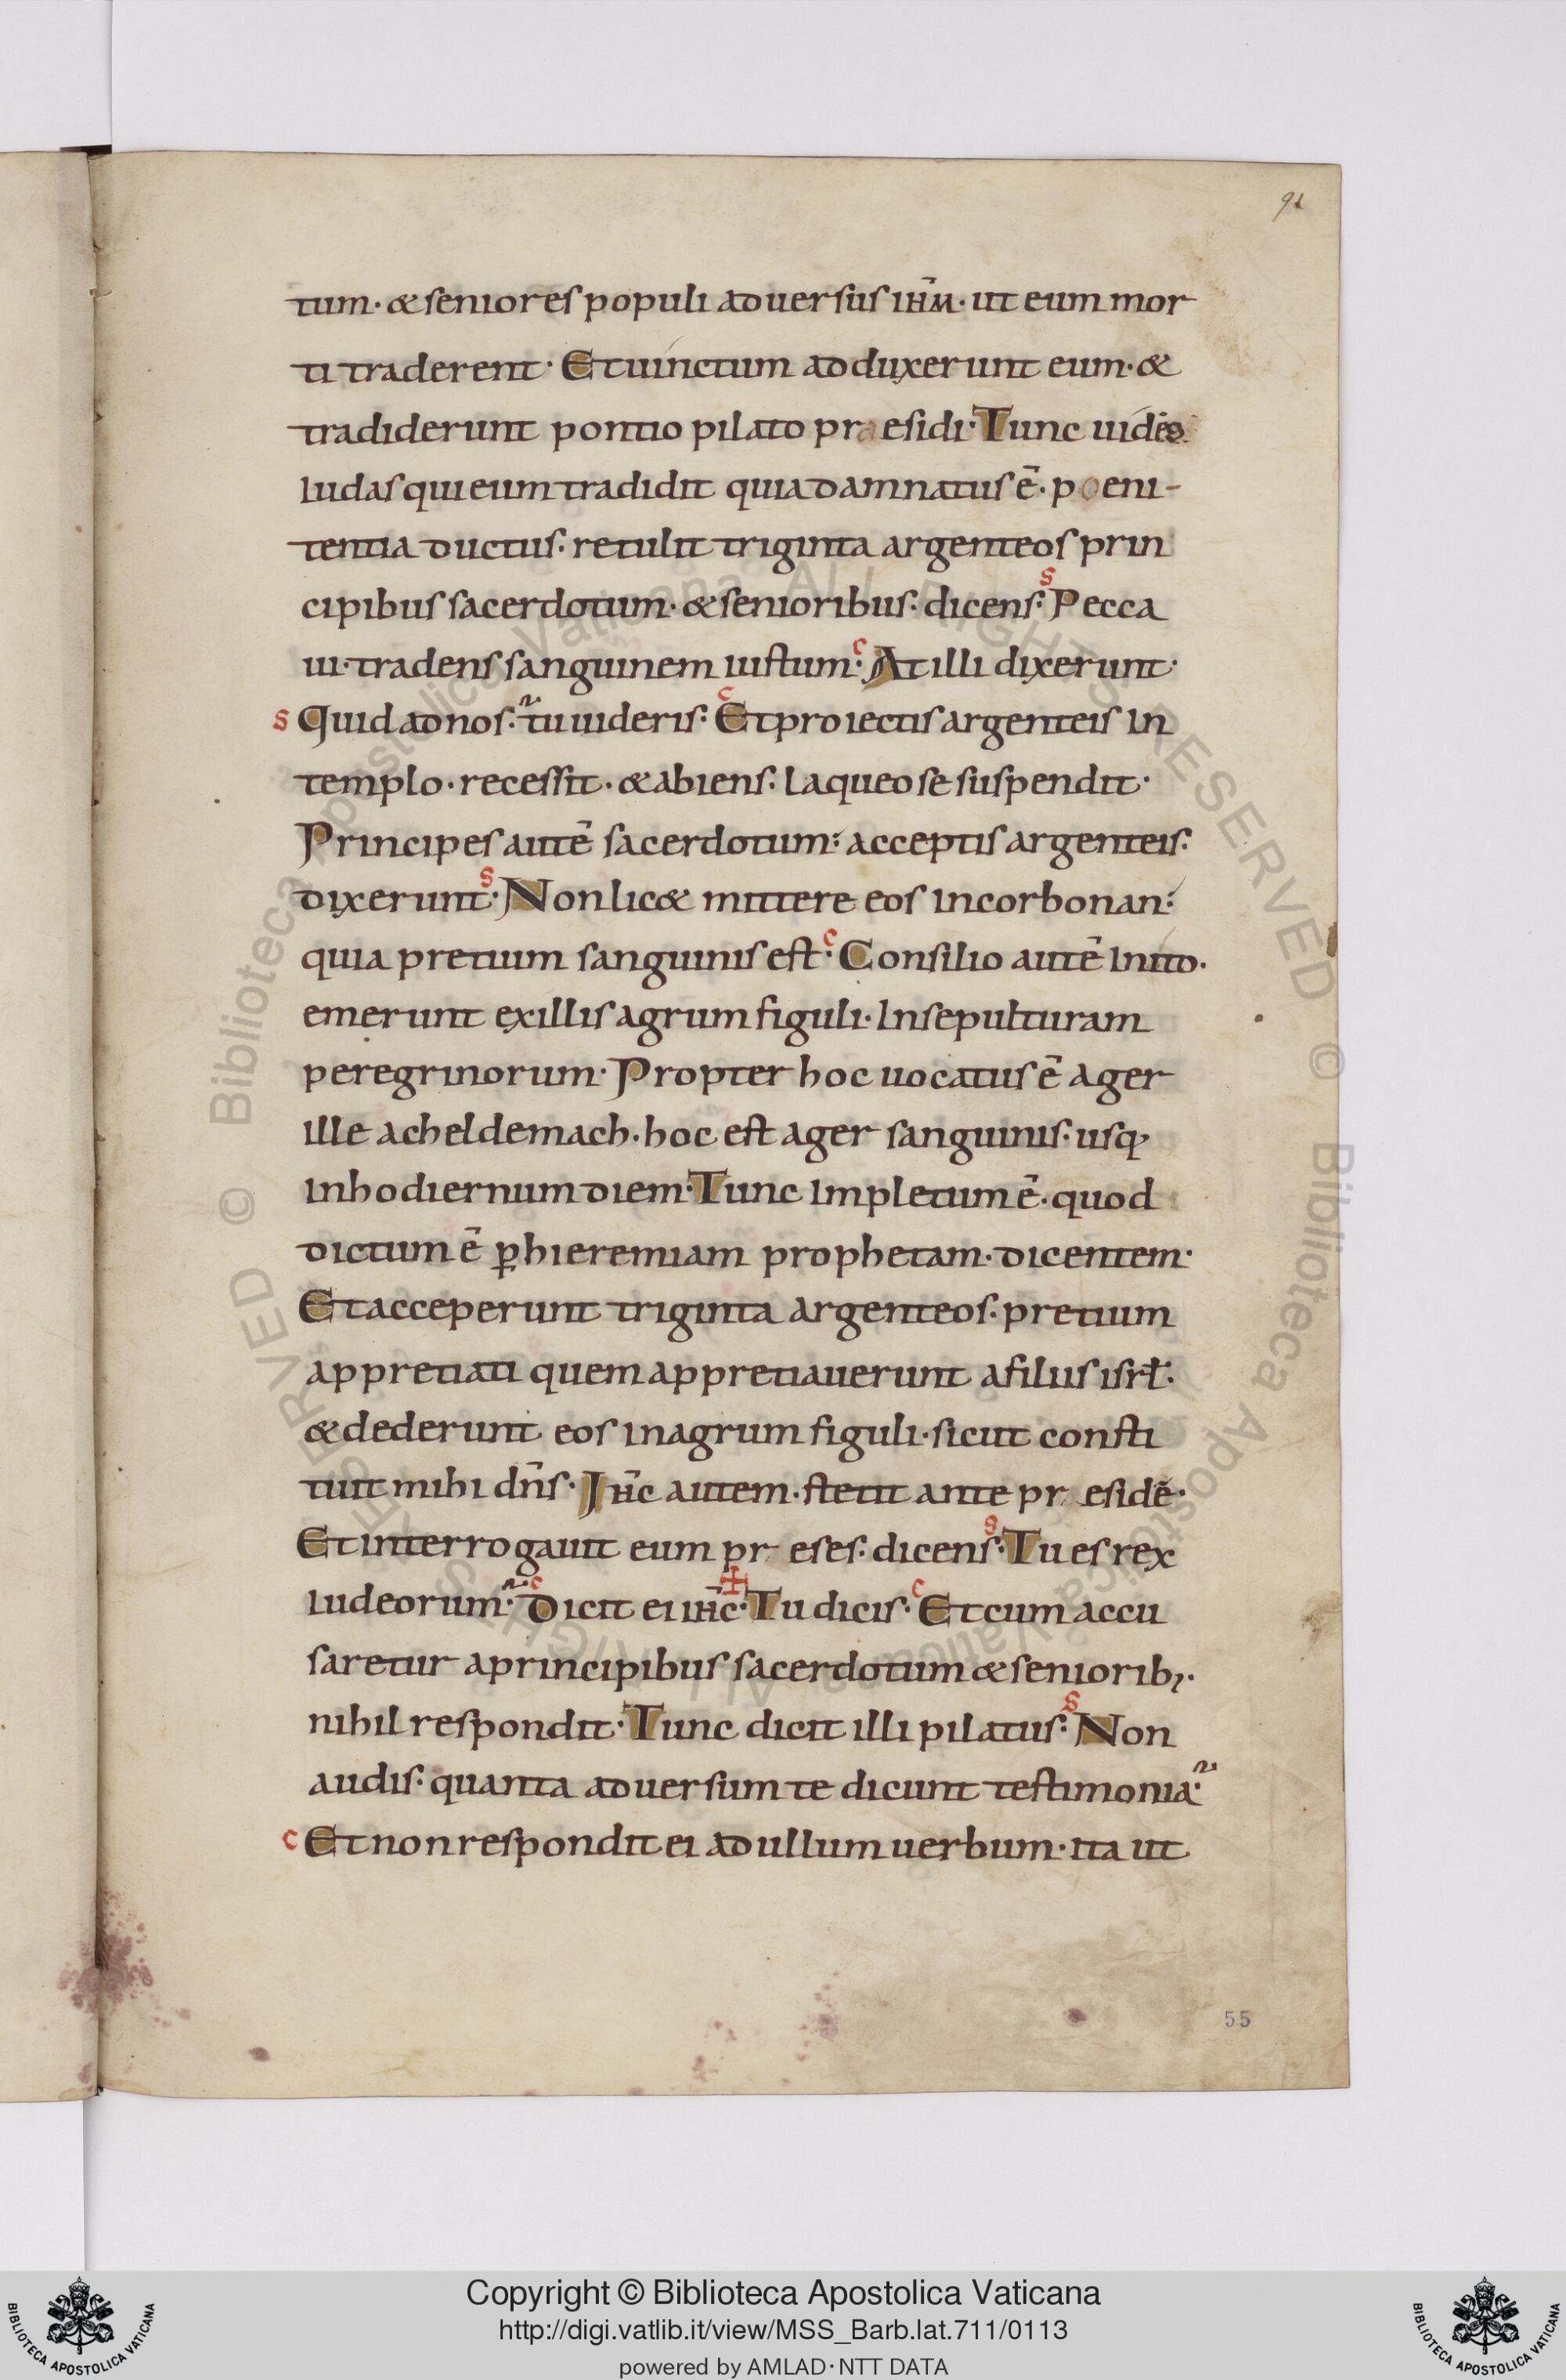 91
tum· & seniores populi aduersus ihm̄· ut eum mor
ti traderent· Et uinctum adduxerunt eum· &
tradiderunt pontio pilato praesidi· Tunc uidēs
Iudas qui eum tradidit quia damnatus ē· poeni-
tentia ductus· retulit triginta argenteos prin
cipibus sacerdotum· & senioribus· dicens· s Pecca
ui· tradens sanguinem iustum· c At illi dixerunt·
s Quid ad nos· tu uideris· c Et proiectis argenteis In
templo· recessit· & abiens· laqueo se suspendit·
Principes autē sacerdotum· acceptis argenteis·
dixerunt· s Non lic& mittere eos in corbonan·
quia pretium sanguinis est· c Consilio autē Inito·
emerunt ex illis agrum figuli· In sepulturam
peregrinorum· Propter hoc uocatus ē ager
ille acheldemach· hoc est ager sanguinis· usq;
in hodiernum diem· Tunc Impletum ē· quod
dictum ē ꝑ hieremiam prophetam· dicentem·
Et acceperunt triginta argenteos· pretium
appretiati quem appretiauerunt a filiis isrł·
& dederunt eos in agrum figuli· sicut consti
tuit mihi dn̄s· Ihc̄ autem· stetit ante pr esidē·
Et interrogauit eum pr eses· dicens· s Tu es rex
Iudeorum· c Dicit ei ihc̄· ✠ Tu dicis· c Et cum accu
saretur a principibus sacerdotum & seniorib;·
nihil respondit· Tunc dicit illi pilatus· s Non
audis· quanta aduersum te dicunt testimonia·
c Et non respondit ei ad ullum uerbum· ita ut
55
© Biblioteca Apostolica Vaticana ALL RIGHTS RESERVED © Biblioteca Apostolica Vaticana ALL RIGHTS RESERVED
Copyright © Biblioteca Apostolica Vaticana
http://digi.vatlib.it/view/MSS_Barb.lat.711/0113
powered by AMLAD·NTT DATA
BIBLIOTECA APOSTOLICA VATICANA
BIBLIOTECA APOSTOLICA VATICANA